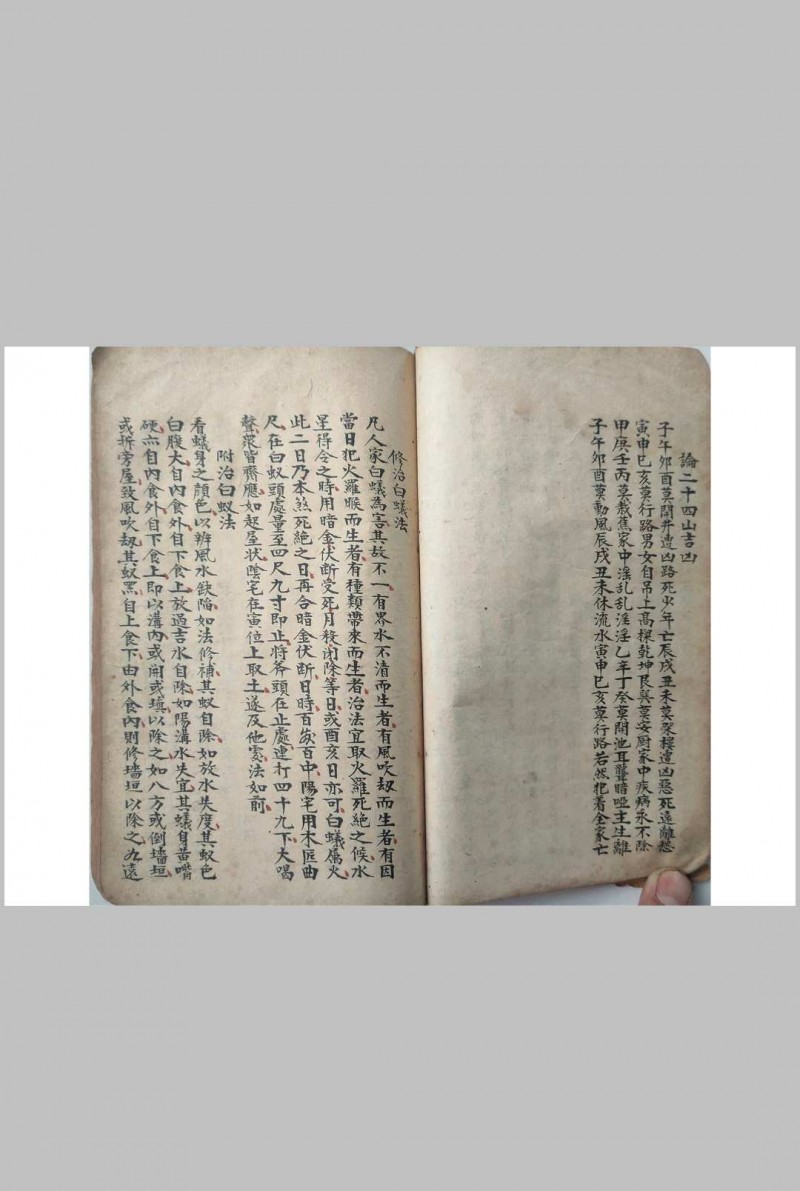 論二十四山吉凶
子午卯酉莫開井遭凶路死少年亡辰戌丑未莫架樓遭凶惡死遠離愁
寅申巳亥莫行路男女自吊土高樑乾坤艮巽莫安厨家中疾病永不除
甲庚壬丙莫栽蕉家中淫乱乱淫淫乙辛丁癸莫開池耳聾暗啞主生離
子午卯酉莫動風辰戌丑未休流水寅申巳亥莫行路若然犯着全家亡
修治白蟻法
凡人家白蟻為害其故不一有界水不清而生者有風吹刼而生者有因
當日犯火羅睺而生者有種類帶來而生者治法宜取火羅死絕之候水
星得令之時用暗金伏斷受死月殺閉除等日或酉亥日亦可白蟻属火
此二日乃本煞死絕之日再合暗金伏斷日時百發百中陽宅用木匠曲
尺在白蚁頭處量至四尺九寸即止將斧頭在止處連打四十九下大喝
聲衆皆齊應如起屋状陰宅在寅位上取土遂及他處法如前
附治白蚁法
看蟻身之顔色以辨風水缺陷如法修補其蚁自除如放水失度其蚁色
白腹大自內食外自下食上放過吉水自除如陽溝水失宜其蟻身黄嘴
硬亦自內食外自下食上即以溝內或開或填以除之如八方或倒墻垣
或拆旁屋致風吹刼其蚁黑自上食下由外食內則修墻垣以除之九遠